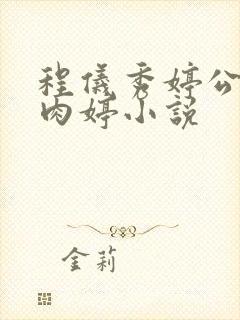 程儀秀婷公
肉婷小說
金莉